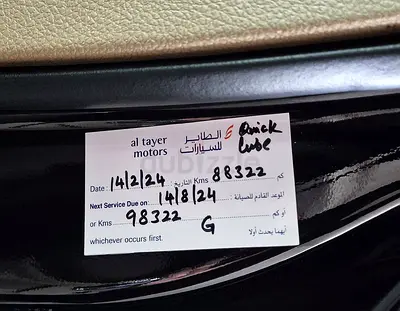 al tayer الطاير Quick
motors للسيارات Lube
dubizzle
Date : 14/2/24 : التاريخ Kms 88322 كم
Next Service Due on: 14/8/24 : الموعد القادم للصيانة
or Kms 98322 أو كم
G
whichever occurs first. أيهما يحدث أولا